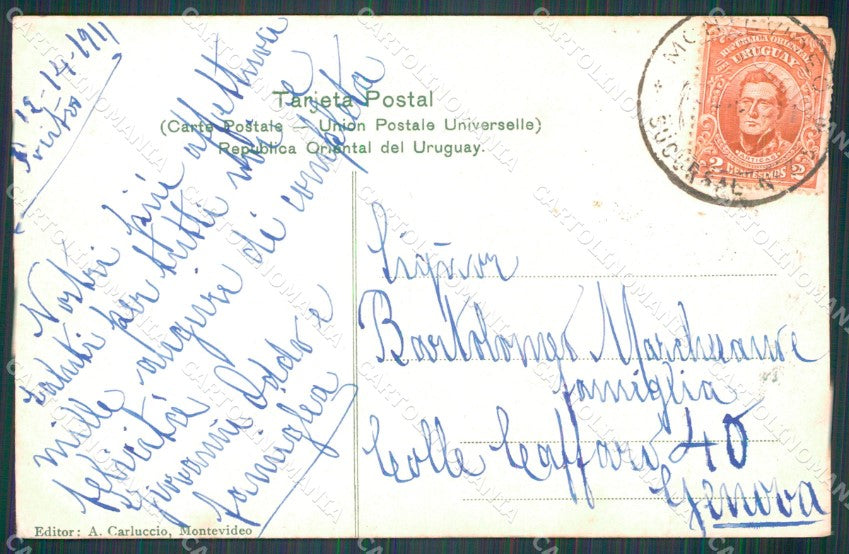 12-14-1911
Tarjeta Postal
(Carte Postale — Union Postale Universelle)
República Oriental del Uruguay.
Nostri piú affettuosi
saluti per tutti voi e
mille auguri di completa
felicitá
Giovanni Oddo e
famiglia
Signor
Bartolomeo
famiglia
Colle Caffaro 40
Genova
REPUBLICA ORIENTAL
URUGUAY
ARTIGAS
2 CENTESIMOS 2
SUCURSAL
Editor: A. Carluccio, Montevideo
CARTOLINOMANIA